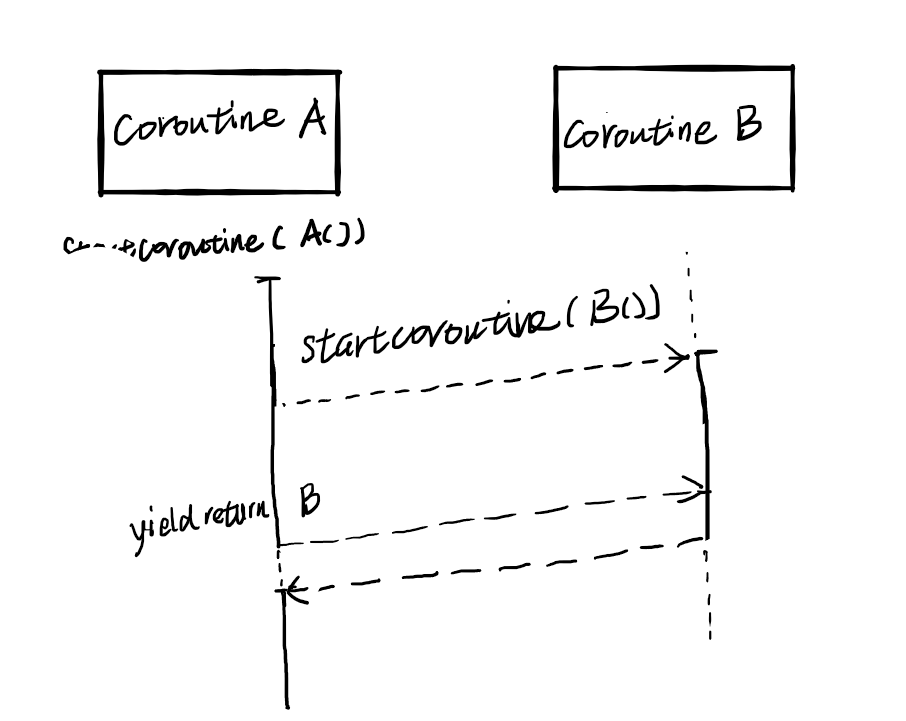 Coroutine A
Coroutine B
coroutine ( A())
startcoroutine ( B())
yield return B